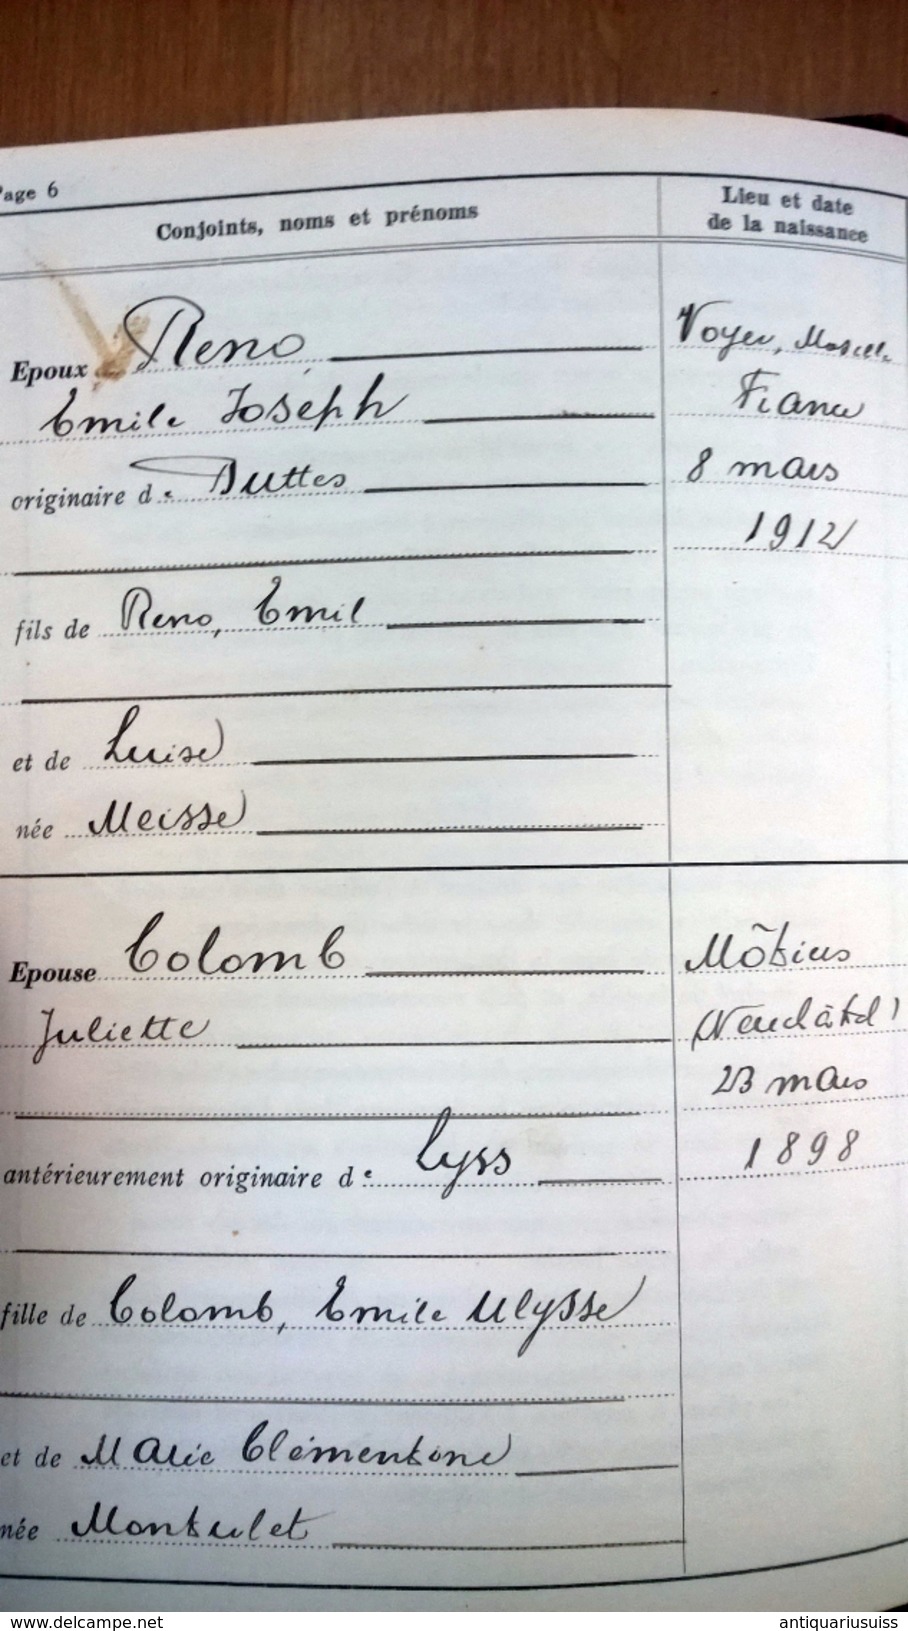 Page 6
Conjoints, noms et prénoms
Lieu et date
de la naissance
Epoux Reno
Emile Joseph
originaire de Buttes
fils de Reno, Emil
et de Luise
née Meisse
Voyer, Moselle
France
8 mars
1912
Epouse Colomb
Juliette
antérieurement originaire de Lyss
fille de Colomb, Emile Ulysse
et de Marie Clémentine
née Montulet
Môtiers
(Neuchâtel)
23 mars
1898
www.delcampe.net
antiquariusuiss